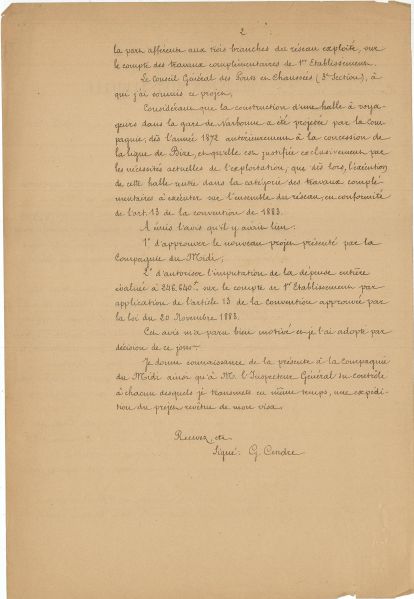 2
la part afférente aux trois branches du réseau exploité, sur
le compte des travaux complémentaires de 1er Etablissement.
Le Conseil Général des Ponts et Chaussées (3e Section), à
qui j'ai soumis ce projet,
Considérant que la construction d'une halle à voya-
geurs dans la gare de Narbonne a été projetée par la Com-
pagnie, dès l'année 1872 antérieurement à la concession de
la ligne de Bize, et qu'elle est justifiée exclusivement par
les nécessités actuelles de l'exploitation, que dès lors, l'exécution
de cette halle rentre dans la catégorie des travaux complé-
mentaires à exécuter sur l'ensemble du réseau, en conformité
de l'art. 13 de la convention de 1883.
A émis l'avis qu'il y avait lieu:
1° d'approuver le nouveau projet présenté par la
Compagnie du Midi;
2° d'autoriser l'imputation de la dépense entière
évaluée à 246.640f, sur le compte de 1er Etablissement par
application de l'article 13 de la convention approuvée par
la loi du 20 Novembre 1883.
Cet avis m'a paru bien motivé et je l'ai adopté par
décision de ce jour.
Je donne connaissance de la présente à la Compagnie
du Midi ainsi qu'à M. l'Inspecteur Général du contrôle
à chacun desquels je transmets en même temps, une expédi-
tion du projet revêtue de mon visa.
Recevez, etc
Signé: G. Cendre